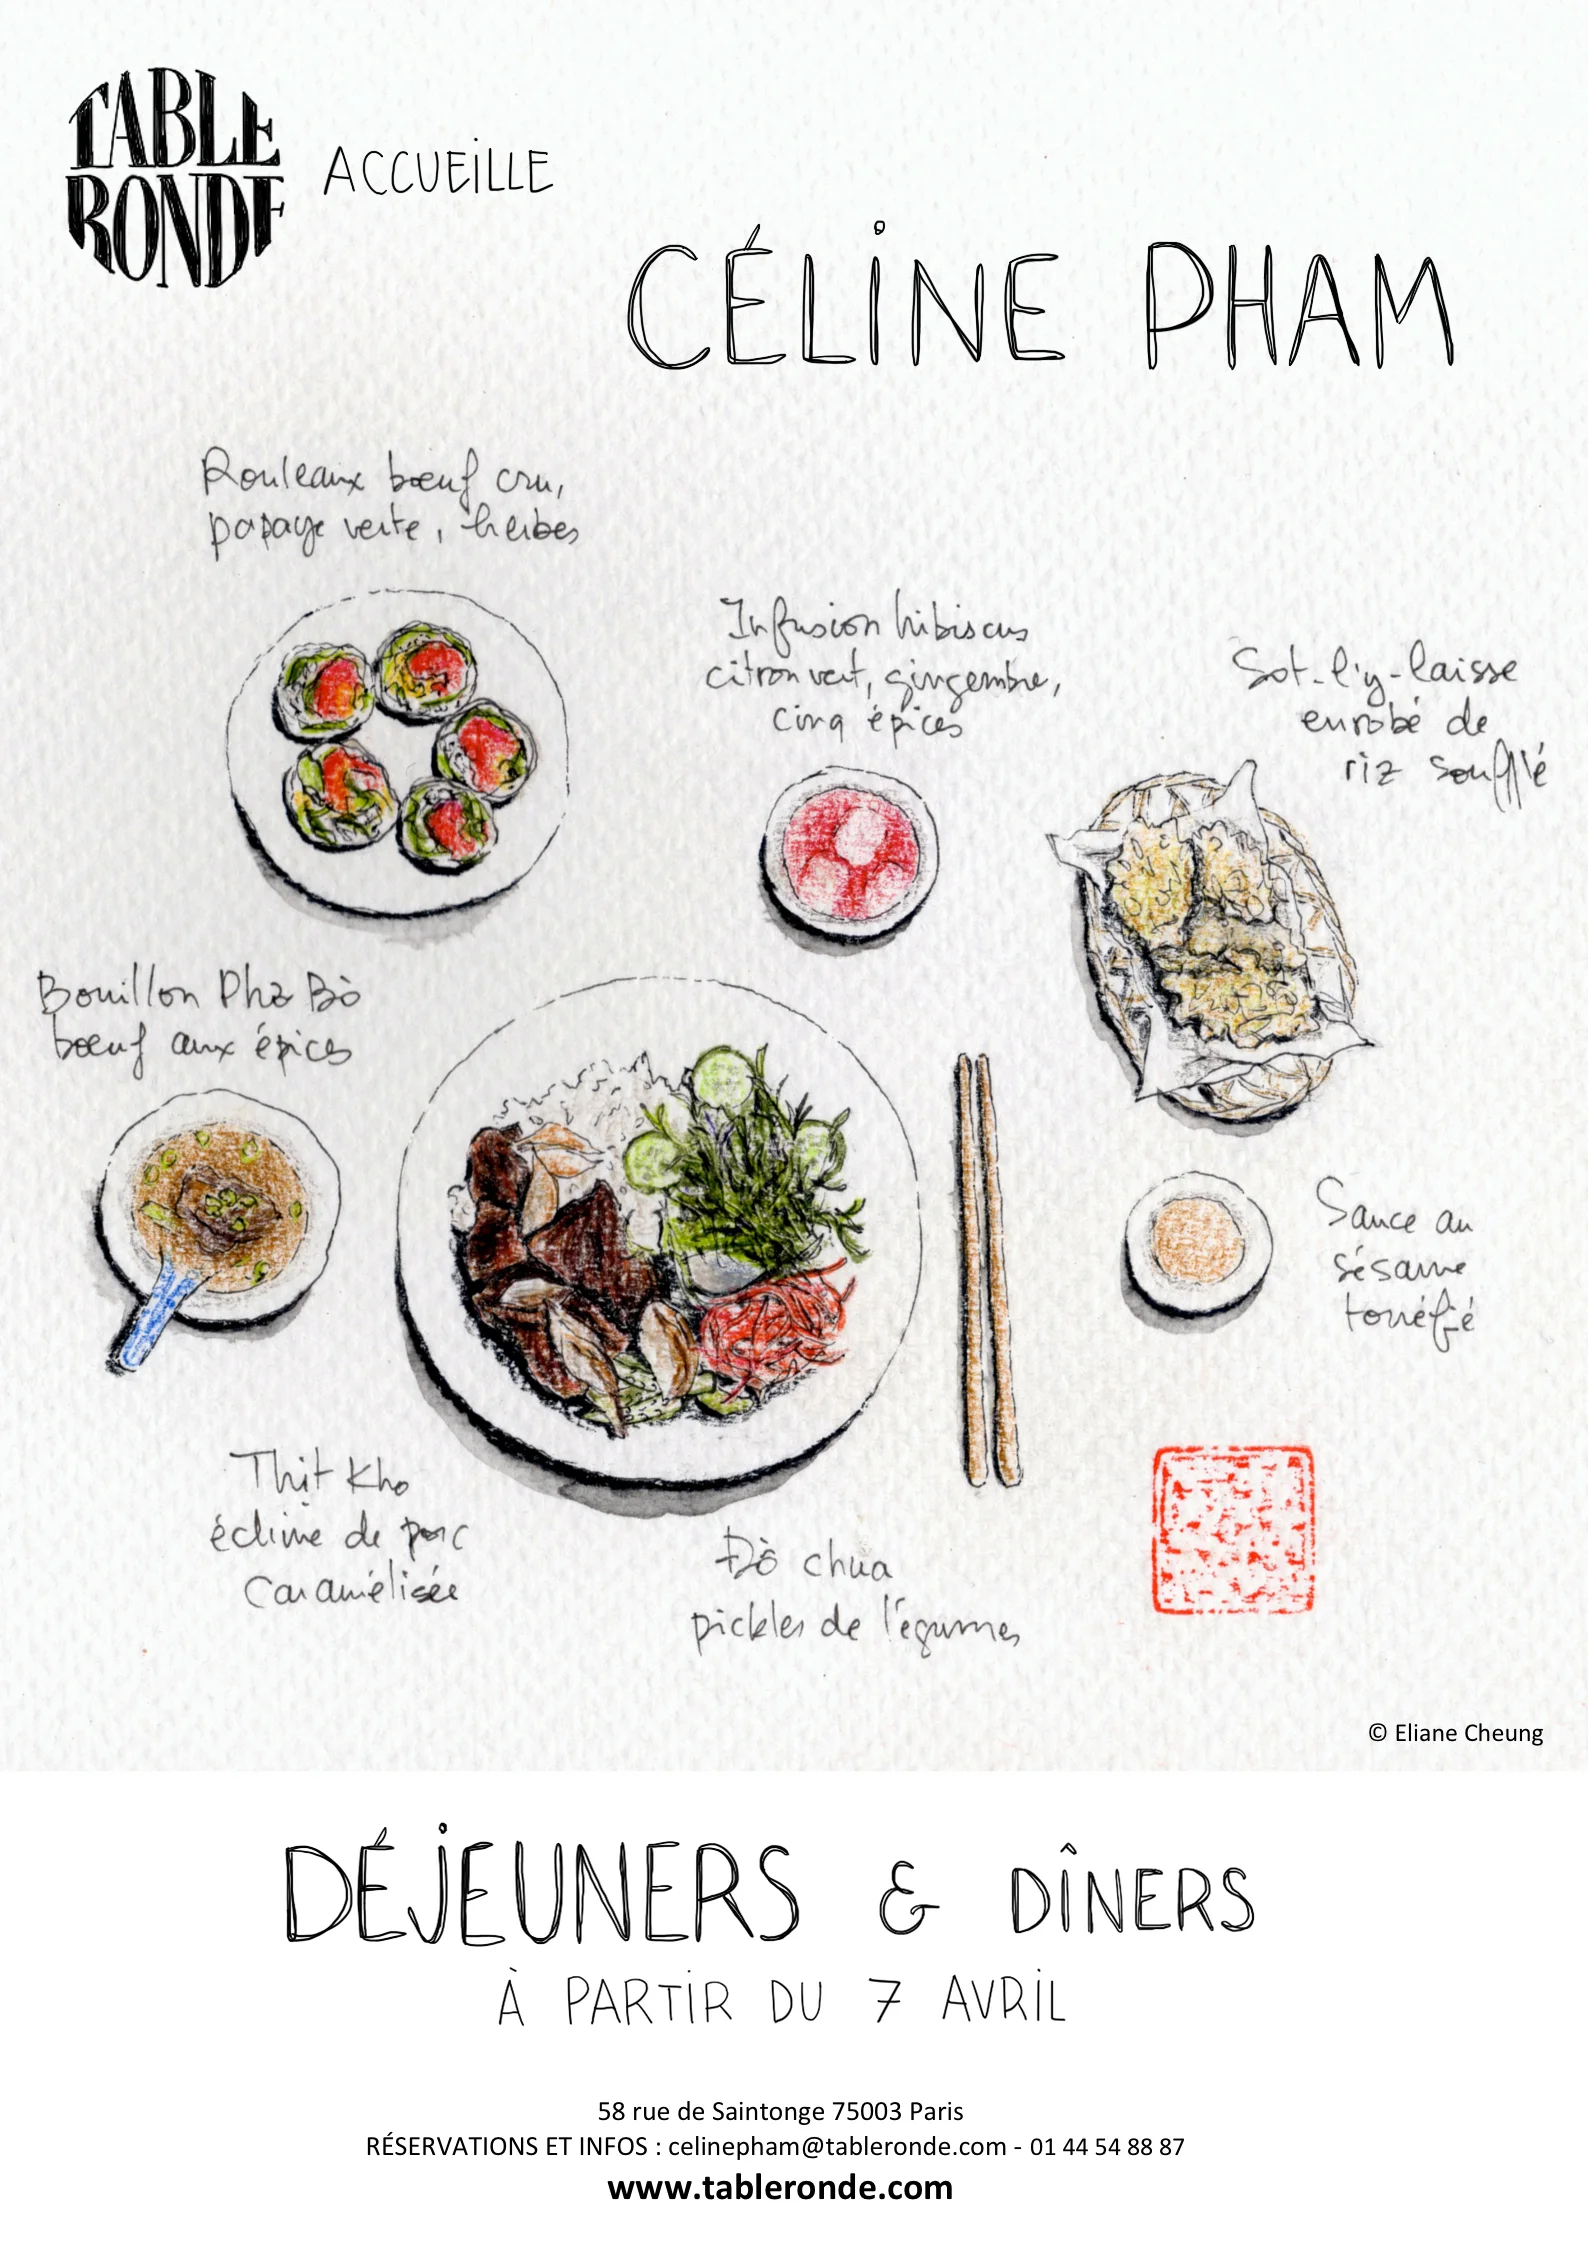 TABLE
RONDE
ACCUEILLE
CÉLINE PHAM
Rouleaux bœuf cru,
papaye verte, herbes
Infusion hibiscus
citron vert, gingembre,
cinq épices
Sot-l'y-laisse
enrobé de
riz soufflé
Bouillon Phở Bò
bœuf aux épices
Sauce au
sésame
torréfié
Thịt Kho
échine de porc
caramélisée
Đồ chua
pickles de légumes
© Eliane Cheung
DÉJEUNERS & DÎNERS
À PARTIR DU 7 AVRIL
58 rue de Saintonge 75003 Paris
RÉSERVATIONS ET INFOS : celinepham@tableronde.com - 01 44 54 88 87
www.tableronde.com